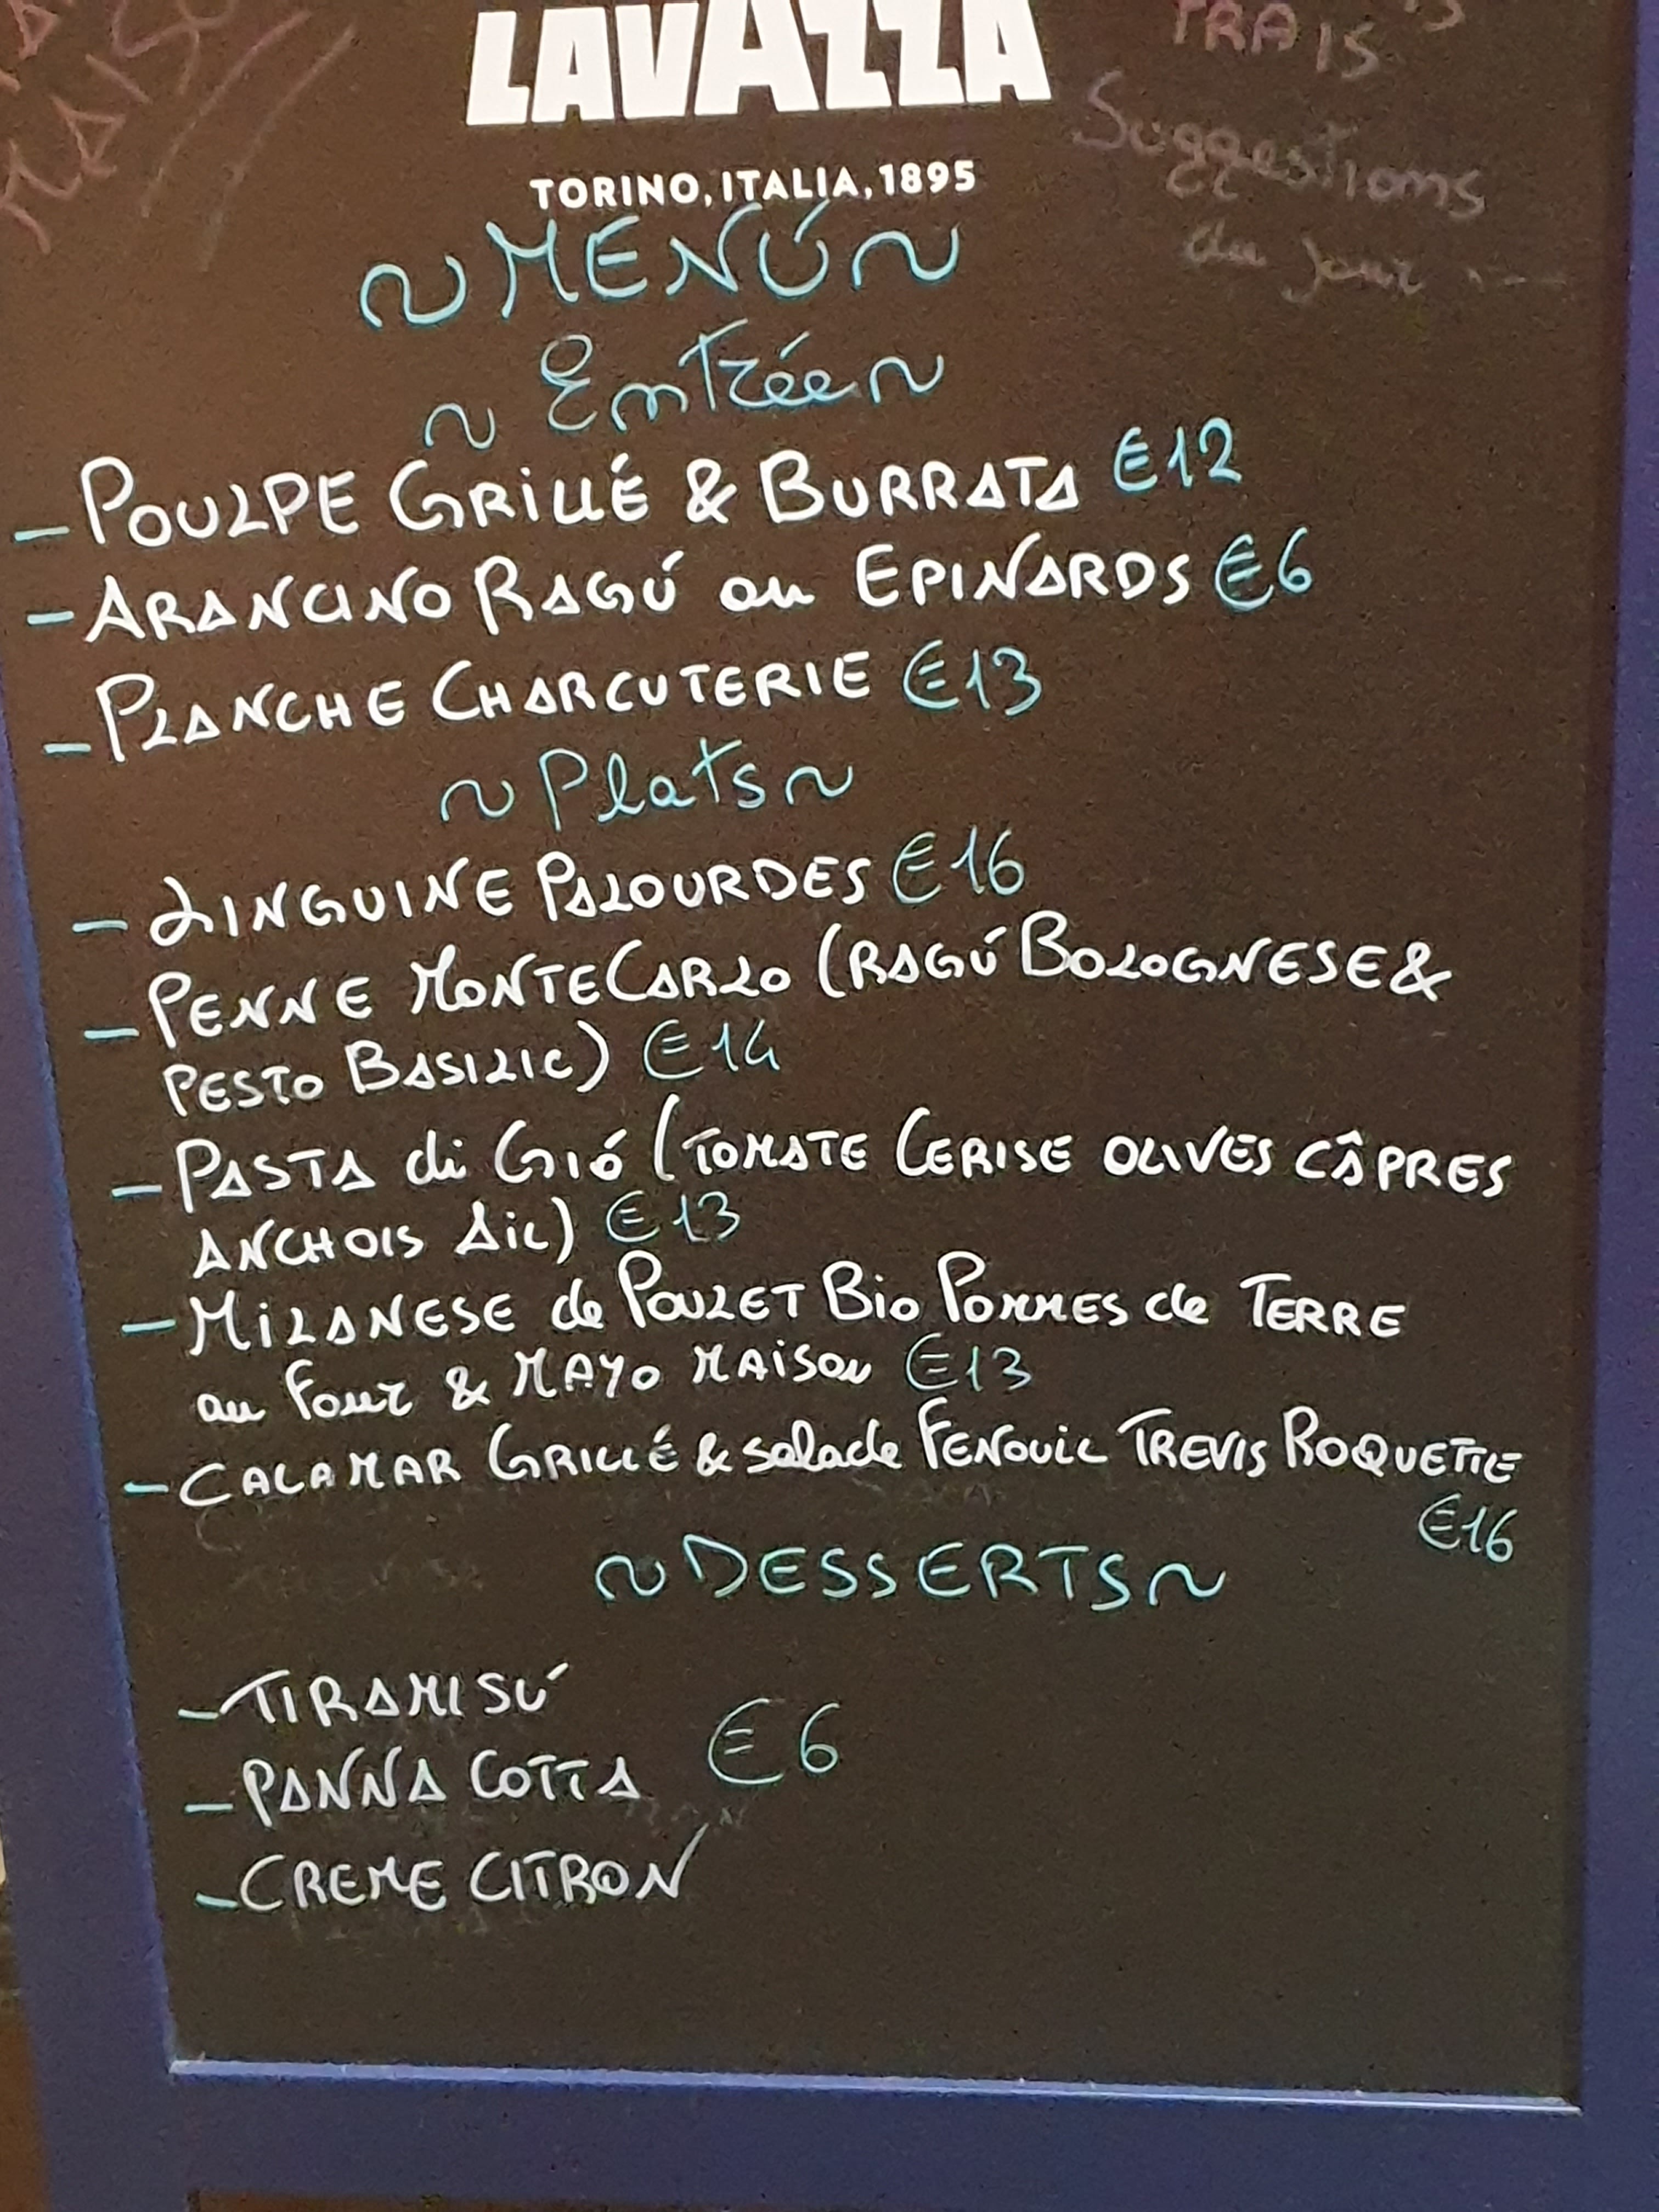 LAVAZZA
TORINO, ITALIA, 1895
TRAIS
Suggestions
du jour ---
~ MENÚ ~
~ Entrée ~
- POULPE GRILLÉ & BURRATA €12
- ARANCINO RAGÚ ou EPINARDS €6
- PLANCHE CHARCUTERIE €13
~ Plats ~
- LINGUINE PALOURDES €16
- PENNE MONTECARLO (RAGÚ BOLOGNESE &
PESTO BASILIC) €14
- PASTA di GIÓ (TOMATE CERISE OLIVES CÂPRES
ANCHOIS AIL) €13
- MILANESE de POULET BIO POMMES de TERRE
au Four & MAYO MAISON €13
- CALAMAR GRILLÉ & salade FENOUIL TREVIS ROQUETTE
€16
~ DESSERTS ~
- TIRAMISÚ
€6
- PANNA COTTA
- CREME CITRON